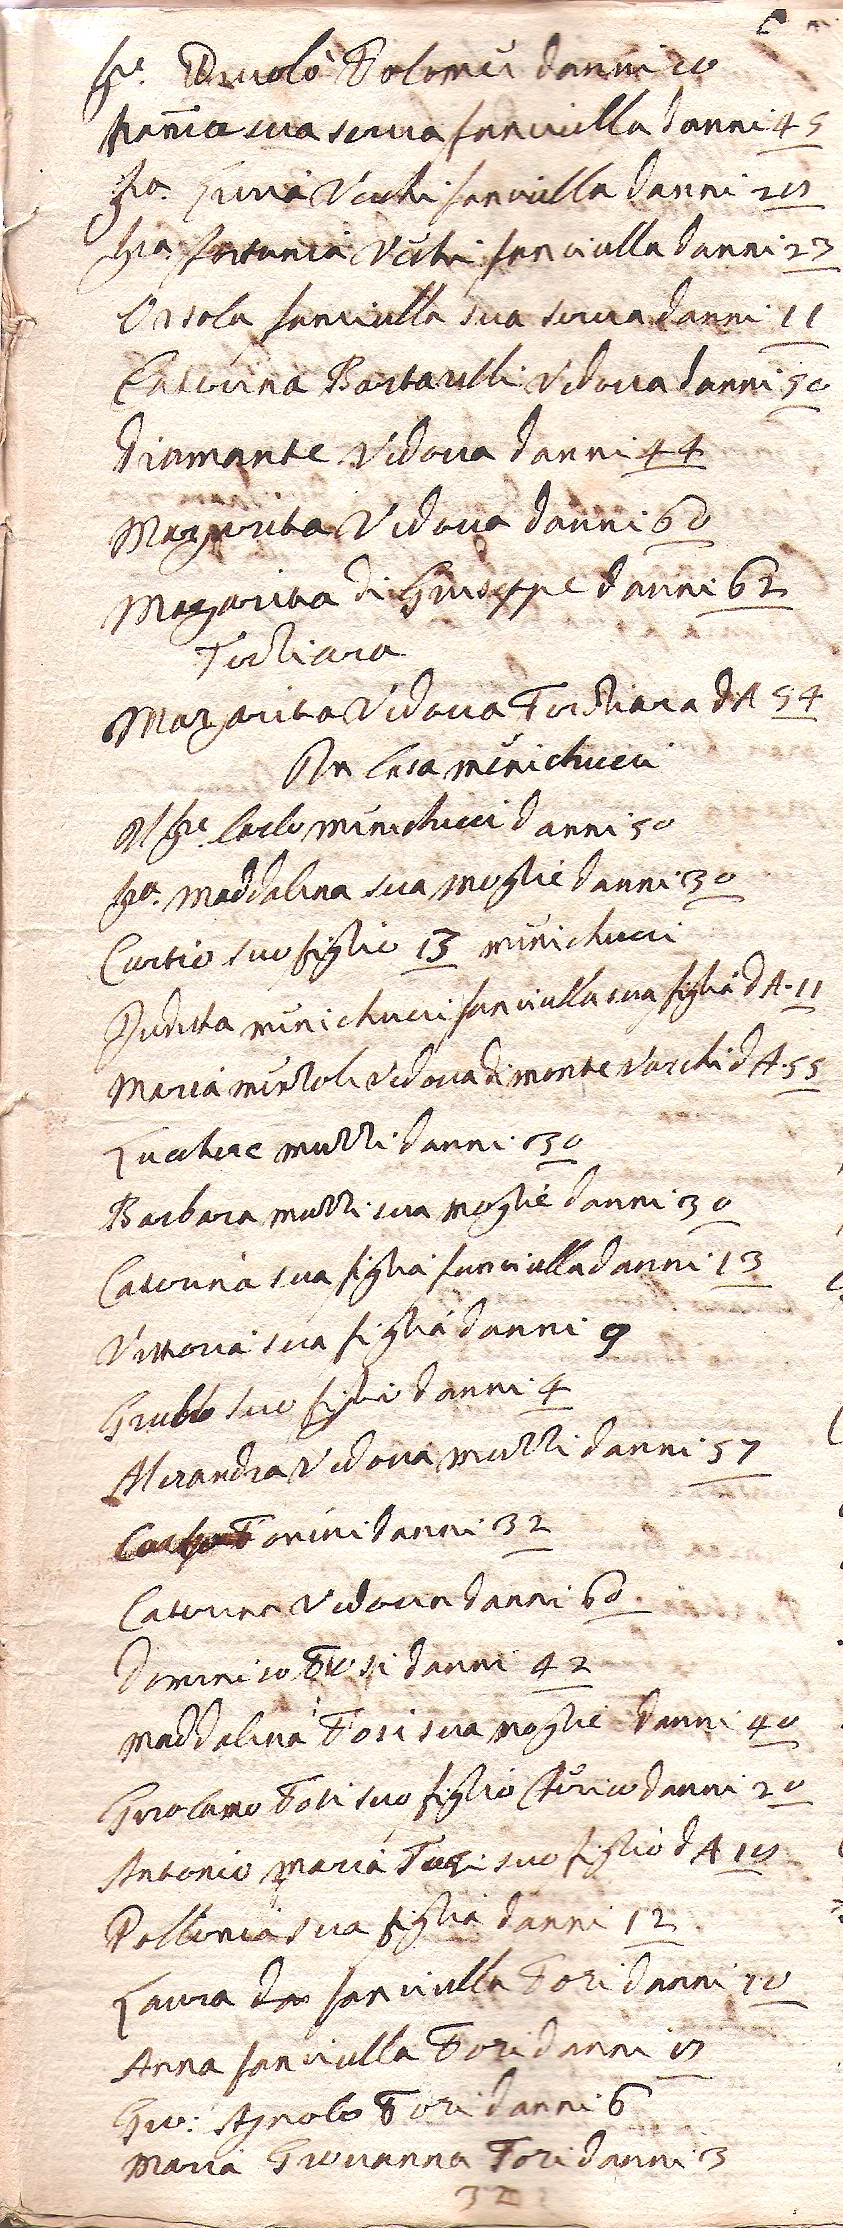 Sre. Tolomei danni
sua serva fanciulla danni 45
Sra. Vechi fanciulla danni
Sra Fortunia Vechi fanciulla danni 23
Orsola fanciulla sua serva danni 11
Caterina Bartarelli Vedova danni 50
Diamante Vedova danni 44
Margarita Vedova danni 60
Margarita di Giuseppe danni 62
Margarita Vedova dA 54
In Casa minichucci
Il Sre. Carlo minichucci danni 50
Sra. Maddalena sua moglie danni 30
Curtio suo figlio 13 minichucci
Juditta minichucci fanciulla sua figlia dA. 11
Maria Vedova di monte Varchi dA. 55
muzzi danni 30
Barbara muzzi sua moglie danni 30
Caterina sua figlia fanciulla danni 13
Vittoria sua figlia danni 9
suo figlio danni 4
Alesandra Vedova muzzi danni 57
danni 32
Caterina Vedova danni 60
Domenico Tosi danni 42
Maddalena Tosi sua moglie danni 40
Girolamo Tosi suo figlio Chierico danni 20
Antonio Maria Tosi suo figlio dA
Pollonia sua figlia danni 12
Laura fanciulla Tosi danni 10
Anna fanciulla Tosi danni
Gio: Agnolo Tosi danni 6
Maria Giovanna Tosi danni 3